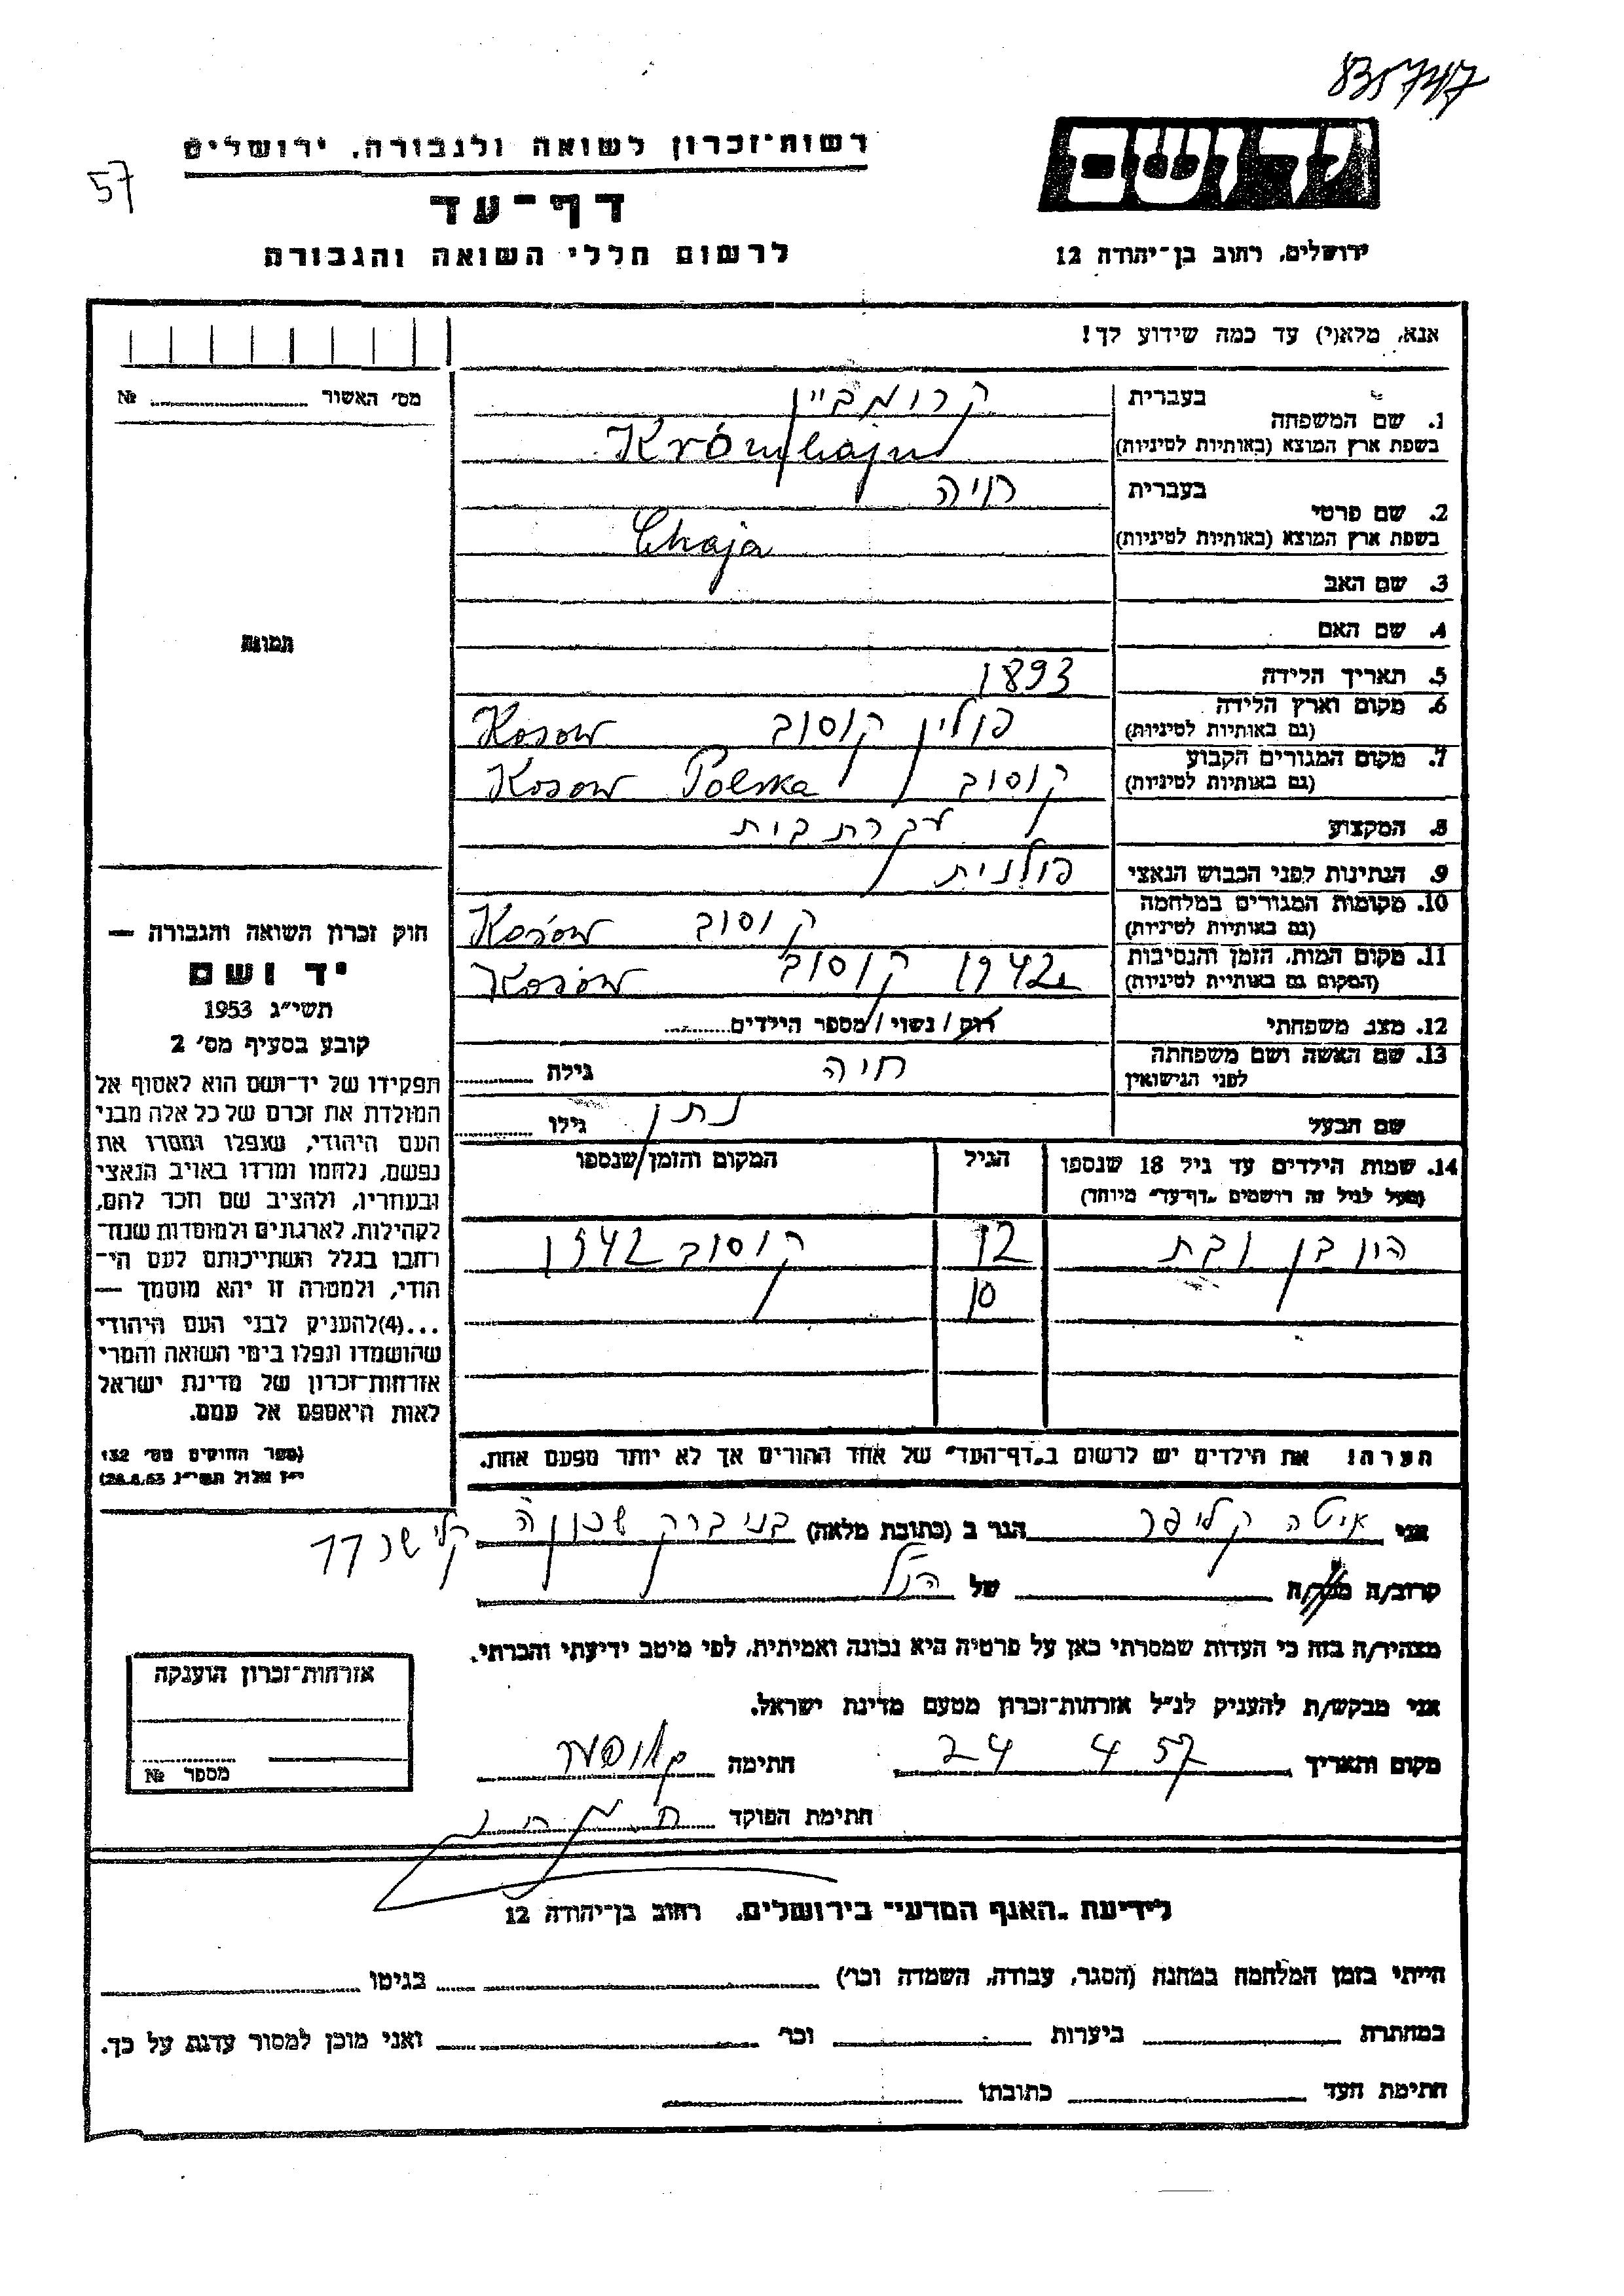 835747
רשות־זכרון לשואה ולגבורה, ירושלים
57
יד ושם
דף־עד
לרשום חללי השואה והגבורה
ירושלים, רחוב בן־יהודה 12
אנא, מלא(י) עד כמה שידוע לך!
מס׳ האשור № 
1. שם המשפחה
בעברית קרומביין
בשפת ארץ המוצא (באותיות לטיניות) Krómbajn
2. שם פרטי
בעברית חיה
בשפת ארץ המוצא (באותיות לטיניות) Chaja
3. שם האב
4. שם האם
תמונה
5. תאריך הלידה 1893
6. מקום וארץ הלידה (גם באותיות לטיניות) פולין קוסוב Kosow
7. מקום המגורים הקבוע (גם באותיות לטיניות) קוסוב Kosow Polska
8. המקצוע עקרת בית
9. הנתינות לפני הכבוש הנאצי פולנית
10. מקומות המגורים במלחמה (גם באותיות לטיניות) קוסוב Kosów
11. מקום המות, הזמן והנסיבות (המקום גם באותיות לטיניות) 1942 קוסוב Kosów
12. מצב משפחתי רוק / נשוי / מספר הילדים
13. שם האשה ושם משפחתה לפני הנישואין חיה גילה
שם הבעל נתן גילו
14. שמות הילדים עד גיל 18 שנספו (מעל לגיל זה רושמים „דף־עד״ מיוחד) הגיל המקום והזמן שנספו
בן ובת 12 קוסוב 1942
10
הערה! את הילדים יש לרשום ב„דף־העד״ של אחד ההורים אך לא יותר מפעם אחת.
חוק זכרון השואה והגבורה —
יד ושם
תשי״ג 1953
קובע בסעיף מס׳ 2
תפקידו של יד־ושם הוא לאסוף אל
המולדת את זכרם של כל אלה מבני
העם היהודי, שנפלו ומסרו את
נפשם, נלחמו ומרדו באויב הנאצי
ובעוזריו, ולהציב שם וזכר להם,
לקהילות, לארגונים ולמוסדות שנח־
רבו בגלל השתייכותם לעם הי־
הודי, ולמטרה זו יהא מוסמך —
...(4)להעניק לבני העם היהודי
שהושמדו ונפלו בימי השואה והמרי
אזרחות־זכרון של מדינת ישראל
לאות היאספם אל עמם.
(ספר החוקים מס׳ 132
י״ז אלול תשי״ג 28.8.53)
אני איטה קליפר הגר ב (כתובת מלאה) בני ברק שכונה
קרוב/ה מכר/ה של הנ״ל
מצהיר/ה בזה כי העדות שמסרתי כאן על פרטיה היא נכונה ואמיתית, לפי מיטב ידיעתי והכרתי.
אני מבקש/ת להעניק לנ״ל אזרחות־זכרון מטעם מדינת ישראל.
מקום ותאריך 24 4 57 חתימה
חתימת הפוקד
אזרחות־זכרון הוענקה
מספר №
לידיעת „האגף המדעי״ בירושלים, רחוב בן־יהודה 12
הייתי בזמן המלחמה במחנה (הסגר, עבודה, השמדה וכו׳) בגיטו
במחתרת ביערות וכו׳ ואני מוכן למסור עדות על כך.
חתימת העד כתובתו